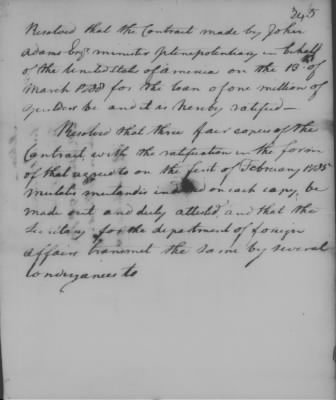 345
Resolved that the Contract made by John
Adams Esqr. minister plenepotentiary in behalf
of the United States of america on the 13th of
March 1788 for the loan of one million of
guilders be and it is hereby ratified —
Resolved that three fair copies of the
Contract with the ratification in the form
of that agreed to on the first of February 1785
mutatis mutandis indorsed on each copy, be
made out and duly attested, and that the
Secretary for the department of foreign
affairs transmit the same by several
conveyances to